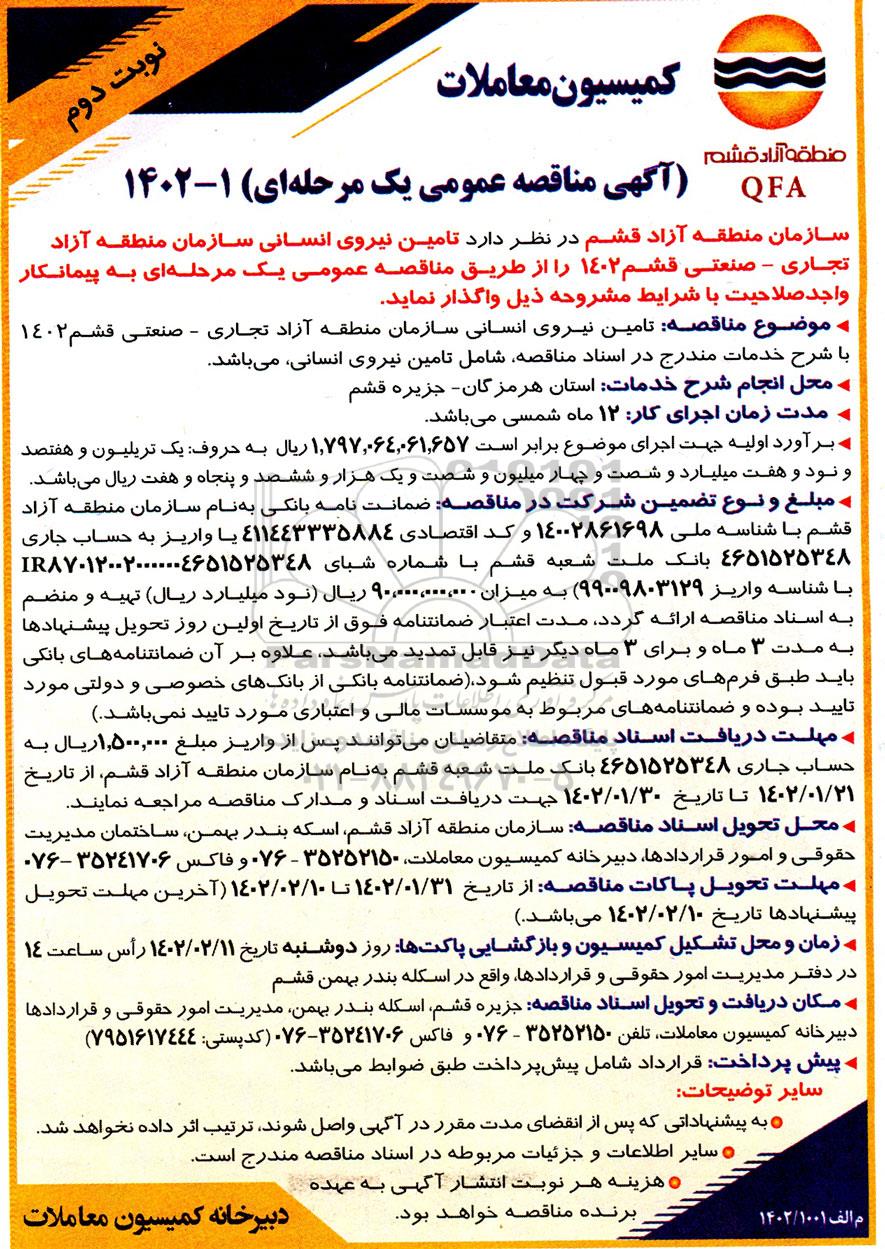 نوبت دوم
کمیسیون معاملات
منطقه آزاد قشم
QFA
(آگهی مناقصه عمومی یک مرحله‌ای) ۱-۱۴۰۲
سازمان منطقه آزاد قشم در نظر دارد تامین نیروی انسانی سازمان منطقه آزاد
تجاری - صنعتی قشم۱۴۰۲ را از طریق مناقصه عمومی یک مرحله‌ای به پیمانکار
واجدصلاحیت با شرایط مشروحه ذیل واگذار نماید.
موضوع مناقصه: تامین نیروی انسانی سازمان منطقه آزاد تجاری - صنعتی قشم۱۴۰۲
با شرح خدمات مندرج در اسناد مناقصه، شامل تامین نیروی انسانی، می‌باشد.
محل انجام شرح خدمات: استان هرمزگان- جزیره قشم
مدت زمان اجرای کار: ۱۲ ماه شمسی می‌باشد.
برآورد اولیه جهت اجرای موضوع برابر است ۱,۷۹۷,۰۶۴,۰۶۱,۶۵۷ ریال به حروف: یک تریلیون و هفتصد
و نود و هفت میلیارد و شصت و چهار میلیون و شصت و یک هزار و ششصد و پنجاه و هفت ریال می‌باشد.
مبلغ و نوع تضمین شرکت در مناقصه: ضمانت نامه بانکی به‌نام سازمان منطقه آزاد
قشم با شناسه ملی ۱۴۰۰۲۸۶۱۶۹۸ و کد اقتصادی ۴۱۱۴۴۳۳۳۵۸۸۴ یا واریز به حساب جاری
۴۶۵۱۵۲۵۳۴۸ بانک ملت شعبه قشم با شماره شبای IR۸۷۰۱۲۰۰۲۰۰۰۰۰۰۴۶۵۱۵۲۵۳۴۸
با شناسه واریز ۹۹۰۰۹۸۰۳۱۲۹) به میزان ۹۰,۰۰۰,۰۰۰,۰۰۰ ریال (نود میلیارد ریال) تهیه و منضم
به اسناد مناقصه ارائه گردد، مدت اعتبار ضمانتنامه فوق از تاریخ اولین روز تحویل پیشنهادها
به مدت ۳ ماه و برای ۳ ماه دیگر نیز قابل تمدید می‌باشد. علاوه بر آن ضمانتنامه‌های بانکی
باید طبق فرم‌های مورد قبول تنظیم شود،(ضمانتنامه بانکی از بانک‌های خصوصی و دولتی مورد
تایید بوده و ضمانتنامه‌های مربوط به موسسات مالی و اعتباری مورد تایید نمی‌باشد.)
مهلت دریافت اسناد مناقصه: متقاضیان می‌توانند پس از واریز مبلغ ۱,۵۰۰,۰۰۰ریال به
حساب جاری ۴۶۵۱۵۲۵۳۴۸ بانک ملت شعبه قشم به‌نام سازمان منطقه آزاد قشم، از تاریخ
۱۴۰۲/۰۱/۲۱ تا تاریخ ۱۴۰۲/۰۱/۳۰ جهت دریافت اسناد و مدارک مناقصه مراجعه نمایند.
محل تحویل اسناد مناقصه: سازمان منطقه آزاد قشم، اسکه بندر بهمن، ساختمان مدیریت
حقوقی و امور قراردادها، دبیرخانه کمیسیون معاملات، ۳۵۲۵۲۱۵۰ - ۰۷۶ و فاکس ۳۵۲۴۱۷۰۶ -۰۷۶
مهلت تحویل پاکات مناقصه: از تاریخ ۱۴۰۲/۰۱/۳۱ تا ۱۴۰۲/۰۲/۱۰ (آخرین مهلت تحویل
پیشنهادها تاریخ ۱۴۰۲/۰۲/۱۰ می‌باشد.)
زمان و محل تشکیل کمیسیون و بازگشایی پاکت‌ها: روز دوشنبه تاریخ ۱۴۰۲/۰۲/۱۱ رأس ساعت ۱۴
در دفتر مدیریت امور حقوقی و قراردادها، واقع در اسکله بندر بهمن قشم
مکان دریافت و تحویل اسناد مناقصه: جزیره قشم، اسکله بندر بهمن، مدیریت امور حقوقی و قراردادها
دبیرخانه کمیسیون معاملات، تلفن ۳۵۲۵۲۱۵۰ - ۰۷۶ و فاکس ۳۵۲۴۱۷۰۶-۰۷۶ (کدپستی: ۷۹۵۱۶۱۷۴۴۴)
پیش پرداخت: قرارداد شامل پیش‌پرداخت طبق ضوابط می‌باشد.
سایر توضیحات:
به پیشنهاداتی که پس از انقضای مدت مقرر در آگهی واصل شوند، ترتیب اثر داده نخواهد شد.
سایر اطلاعات و جزئیات مربوطه در اسناد مناقصه مندرج است.
هزینه هر نوبت انتشار آگهی به عهده
برنده مناقصه خواهد بود.
م الف ۱۴۰۲/۱۰۰۱
دبیرخانه کمیسیون معاملات
ParsNamadData